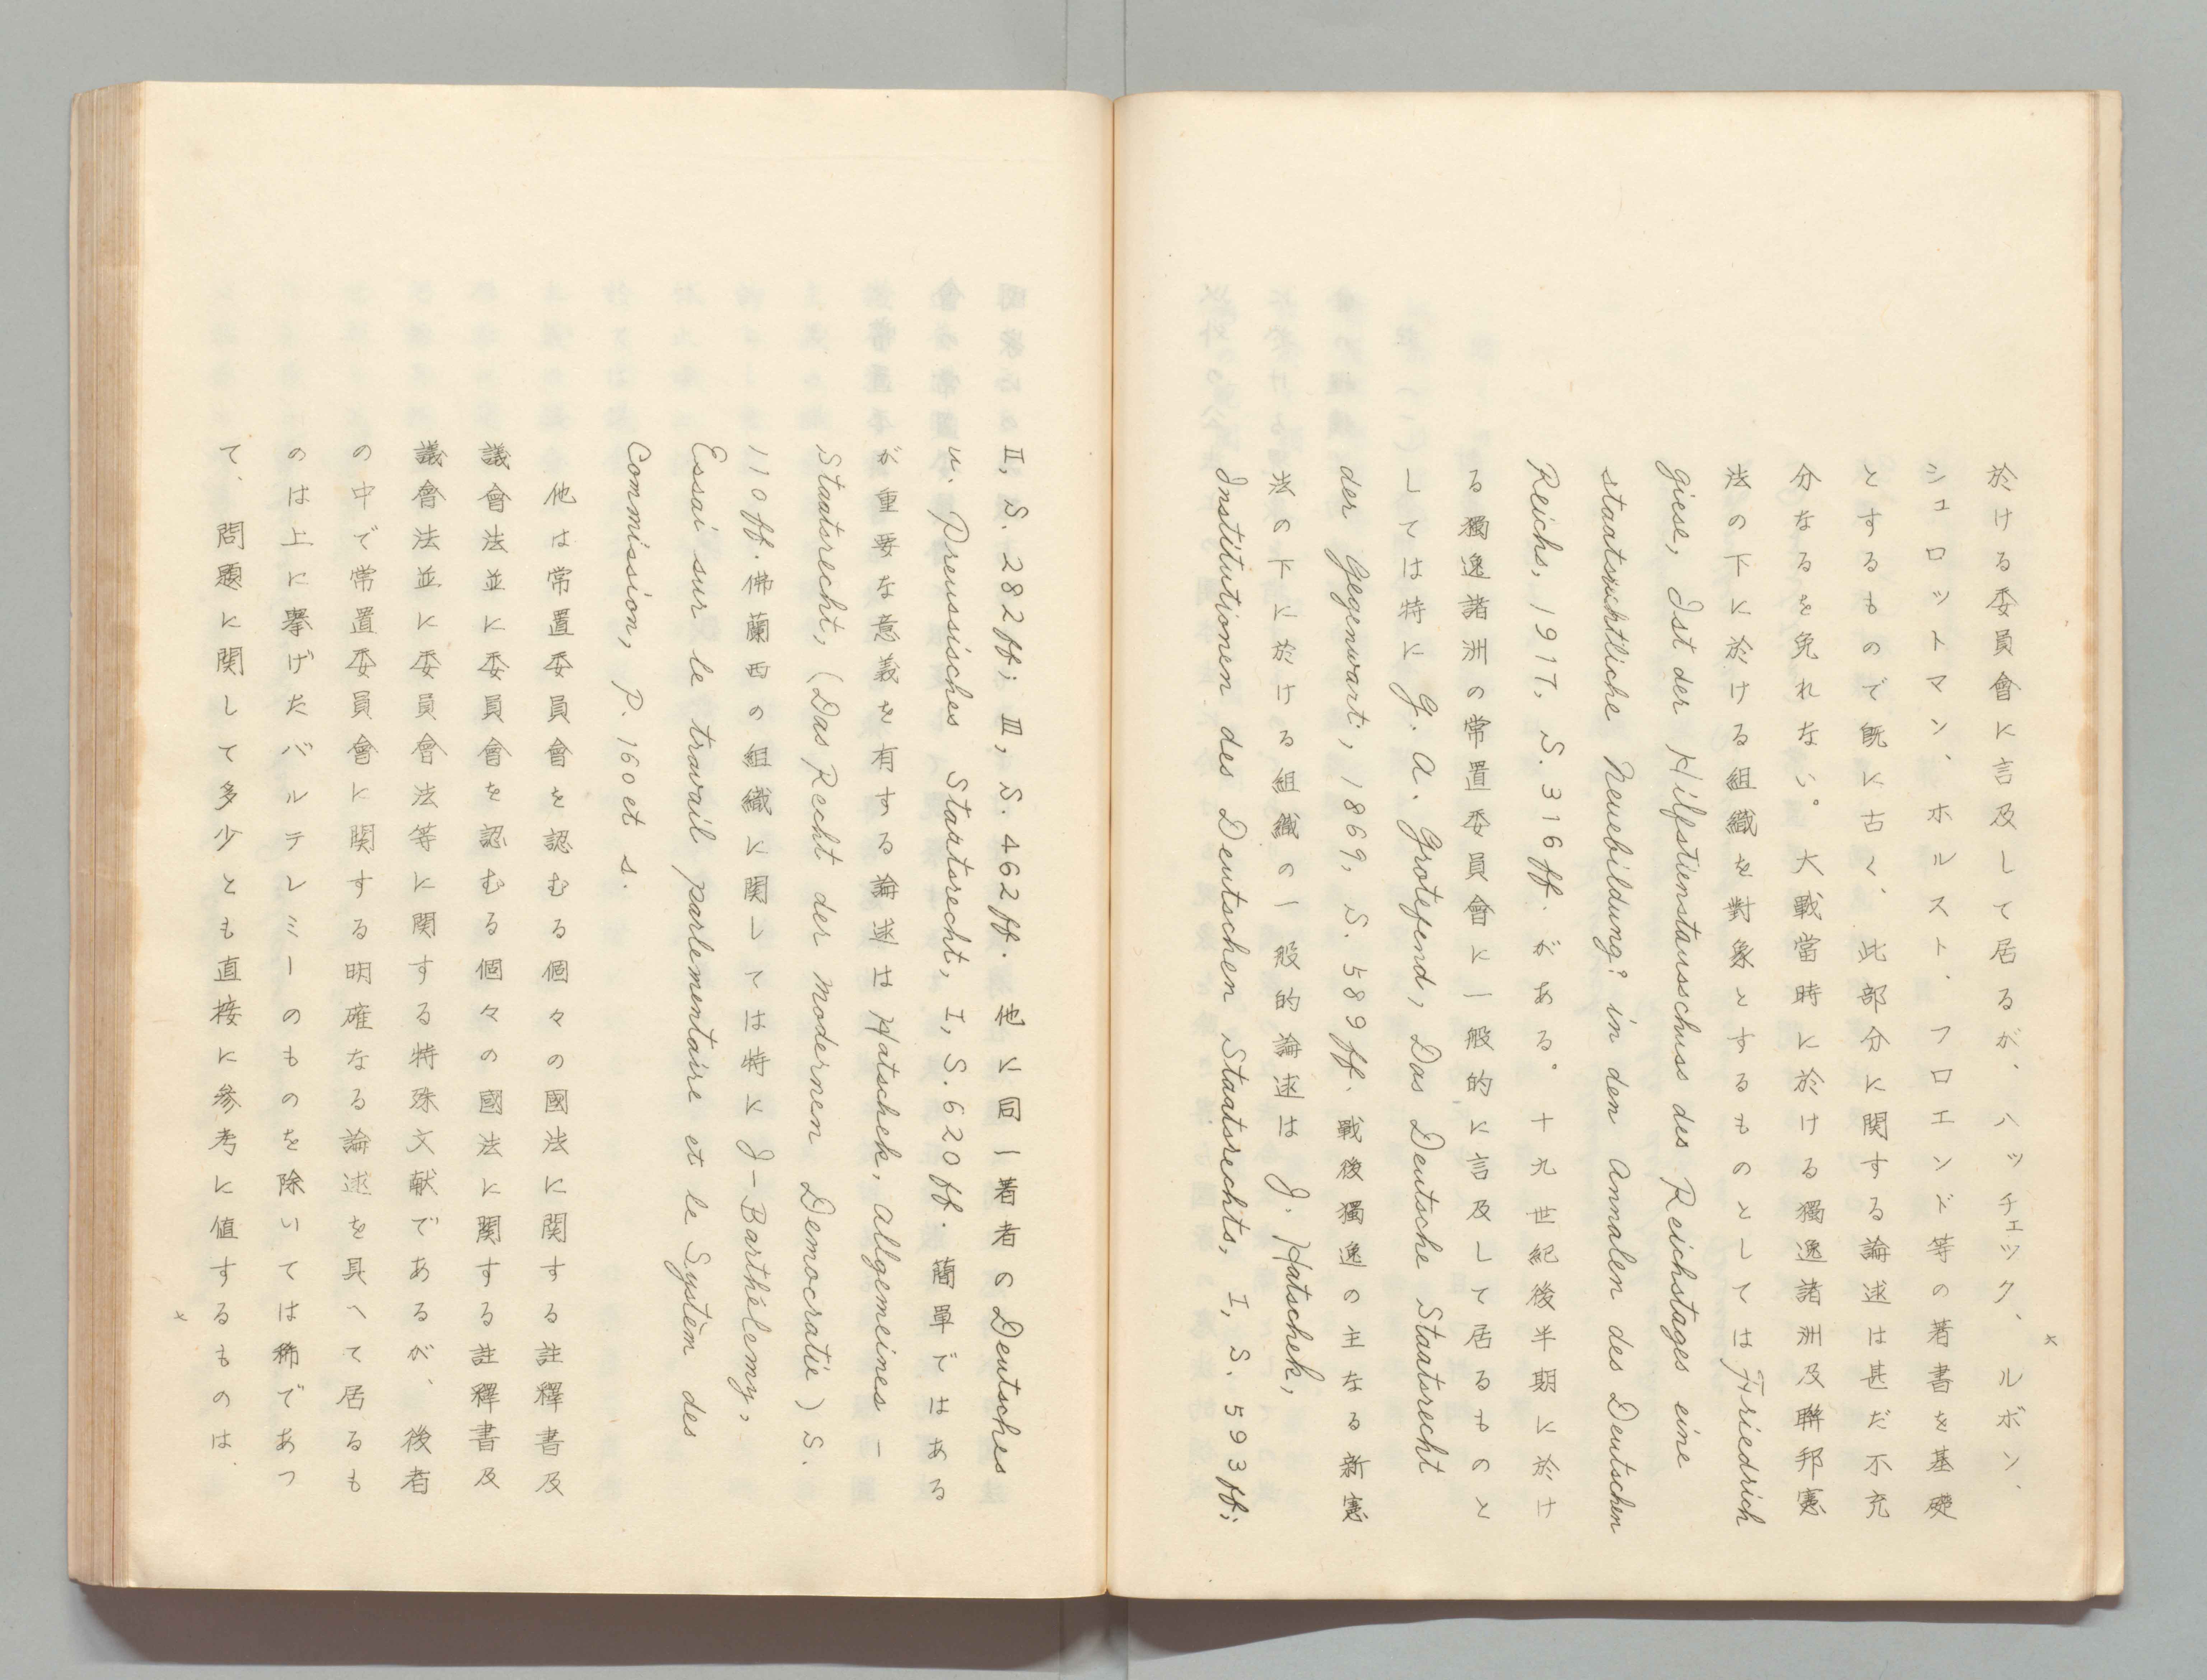 於ける委員會に言及して居るが、ハッチェック、ルボン、
シュロットマン、ホルスト、フロエンド等の著書を基礎
とするもので旣に古く、此部分に関する論述は甚だ不充
分なるを免れない。大戰當時に於ける獨逸諸洲及聯邦憲
法の下に於ける組織を對象とするものとしてはFriedrich
Giese, Ist der Hilfstienstausschuss des Reichstages eine
staatsrichtliche Neuebildung? in den Annalen des Deutschen
Reichs, 1917, S. 316 ff. がある。十九世紀後半期に於け
る獨逸諸洲の常置委員會に一般的に言及して居るものと
しては特に G. A. Grotefend, Das Deutsche Staatsrecht
der Gegenwart, 1869, S. 589 ff. 戰後獨逸の主なる新憲
法の下に於ける組織の一般的論述は J. Hatschek,
Institutionen des Deutschen Staatsrechts, I, S. 593 ff;
II, S. 282 ff; III, S. 462 ff. 他に同一著者の Deutsches
u. Preussisches Staatsrecht, I, S. 620 ff. 簡單ではある
が重要な意義を有する論述は Hatschek, Allgemeines -
Staatsrecht, (Das Recht der modernen Democratie) S.
110 ff. 佛蘭西の組織に関しては特に J-Barthélemy,
Essai sur le travail parlementaire et le Systèm des
Commission, P. 160 et s.
他は常置委員會を認むる個々の國法に関する註釋書及
議會法並に委員會を認むる個々の國法に関する註釋書及
議會法並に委員會法等に関する特殊文献であるが、後者
の中で常置委員會に関する明確なる論述を具へて居るも
のは上に擧げたバルテレミーのものを除いては稀であつ
て、問題に関して多少とも直接に參考に値するものは